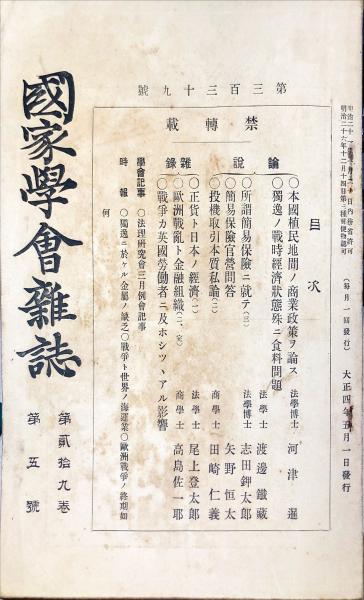 明治二十六年十二月十四日第三種郵便物認可
（每月一回發行）
大正四年五月一日發行
第三百三十九號
禁轉載
目次
論說
○本國植民地間ノ商業政策ヲ論ス 法學博士 河津暹
○獨逸ノ戰時經濟狀態殊ニ食料問題 法學士 渡邊鐵藏
○所謂簡易保險ニ就テ(三) 法學博士 志田鉀太郎
○簡易保險官營問答 矢野恒太
○投機取引本質私論(二) 商學士 田崎仁義
雜錄
○正貨ト日本ノ經濟(二) 法學士 尾上登太郎
○歐洲戰亂ト金融組織(二、完) 商學士 高島佐一郎
○戰爭カ英國勞働者ニ及ホシツヽアル影響
學會記事 ○法理硏究會三月例會記事
時報 ○獨逸ニ於ケル金屬ノ缺乏○戰爭ト世界ノ海運業○歐洲戰爭ノ終期如
何
國家學會雜誌
第貳拾九卷
第五號